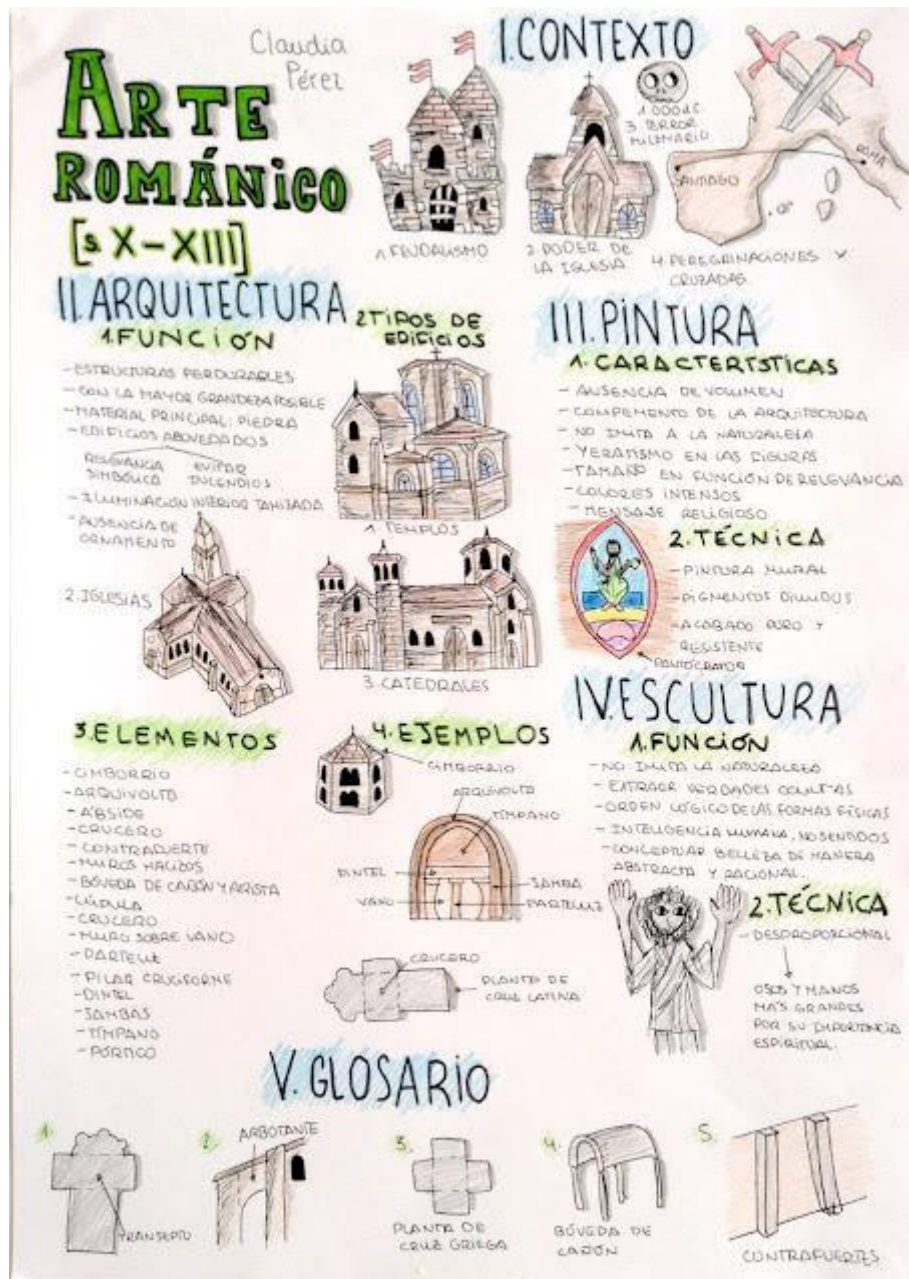 ARTE
ROMÁNICO
[s X-XIII]
Claudia
Pérez
I. CONTEXTO
1. FEUDALISMO
2. PODER DE
LA IGLESIA
1000 d.C.
3. TERROR
MILENARIO
SANTIAGO
ROMA
4. PEREGRINACIONES Y
CRUZADAS
II. ARQUITECTURA
1. FUNCIÓN
- ESTRUCTURAS PERDURABLES
- CON LA MAYOR GRANDEZA POSIBLE
- MATERIAL PRINCIPAL: PIEDRA
- EDIFICIOS ABOVEDADOS
RELEVANCIA
SIMBÓLICA
EVITAR
INCENDIOS
- ILUMINACIÓN INTERIOR TAMIZADA
- AUSENCIA DE
ORNAMENTO
2 TIPOS DE
EDIFICIOS
1. TEMPLOS
2. IGLESIAS
3. CATEDRALES
3. ELEMENTOS
- CIMBORRIO
- ARQUIVOLTO
- ÁBSIDE
- CRUCERO
- CONTRAFUERTE
- MUROS MACIZOS
- BÓVEDA DE CAÑÓN Y ARISTA
- CÚPULA
- CRUCERO
- MURO SOBRE VANO
- PARTELUZ
- PILAR CRUCIFORME
- DINTEL
- JAMBAS
- TÍMPANO
- PÓRTICO
4. EJEMPLOS
CIMBORRIO
ARQUIVOLTA
TÍMPANO
DINTEL
JAMBA
VANO
PARTELUZ
CRUCERO
PLANTA DE
CRUZ LATINA
III. PINTURA
1. CARACTERÍSTICAS
- AUSENCIA DE VOLUMEN
- COMPEMENTO DE LA ARQUITECTURA
- NO IMITA A LA NATURALEZA
- YERATISMO EN LAS FIGURAS
- TAMAÑO EN FUNCIÓN DE RELEVANCIA
- COLORES INTENSOS
- MENSAJE RELIGIOSO
2. TÉCNICA
- PINTURA MURAL
- PIGMENTOS DILUIDOS
- ACABADO DURO Y
RESISTENTE
PANTOCRATOR
IV. ESCULTURA
1. FUNCIÓN
- NO IMITA LA NATURALEZA
- EXTRAER VERDADES OCULTAS
- ORDEN LÓGICO DE LAS FORMAS FÍSICAS
- INTELIGENCIA HUMANA, NO SENTIDOS
- CONCEPTUAR BELLEZA DE MANERA
ABSTRACTA Y RACIONAL.
2. TÉCNICA
- DESPROPORCIONAL
OJOS Y MANOS
MÁS GRANDES
POR SU IMPORTANCIA
ESPIRITUAL.
V. GLOSARIO
1.
TRANSEPTO
2.
ARBOTANTE
3.
PLANTA DE
CRUZ GRIEGA
4.
BÓVEDA DE
CAÑÓN
5.
CONTRAFUERTES